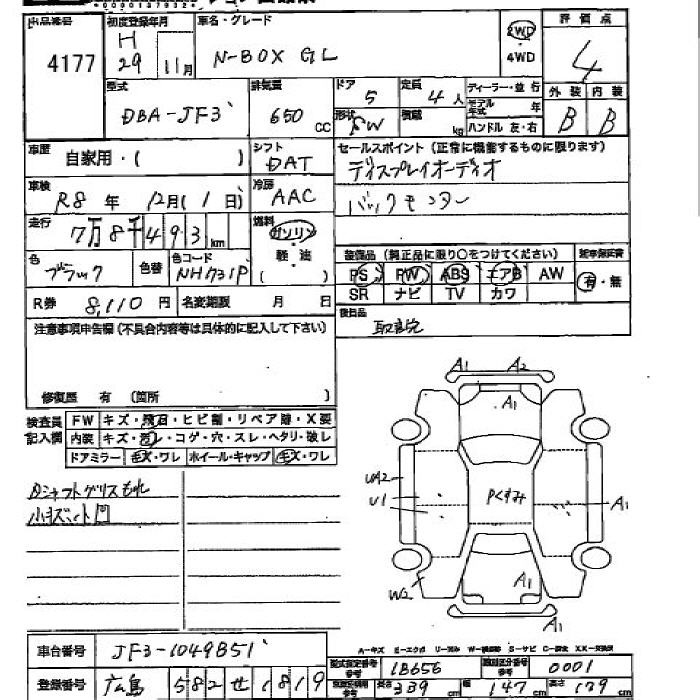 出品番号 初度登録年月 車名・グレード 評価点
4177 H 29 11月 N-BOX GL 2WD ・ 4WD 4
型式 排気量 ドア 定員 ディーラー・並行 外装 内装
DBA-JF3 650 CC 5 4人 モデル年式 年 B B
形状 SW 積載 kg ハンドル 左・右
車歴 自家用・( ) シフト DAT
セールスポイント(正常に機能するものに限ります)
ディスプレイオーディオ
車検 R8年 12月(1日) 冷房 AAC
バックモニター
走行 7万8千493km 燃料 ガソリン・軽油・( )
装備品(純正品に限り○をつけてください)
色 ブラック 色替 色コード NH731P
PS PW ABS エアB AW 有・無
SR ナビ TV カワ
R券 8,110円 名変期限 月 日
後日品 取説
注意事項申告欄(不具合内容等は具体的に記入して下さい)
修復歴 有 (箇所 )
検査員記入欄
FW キズ・飛石・ヒビ割・リペア跡・X要
内装 キズ・汚レ・コゲ・穴・スレ・ヘタリ・破レ
ドアミラー キズ・ワレ ホイール・キャップ キズ・ワレ
Dシャフトグリスもれ
小キズ 凹
A1 A2
A1
UA2
U1
Pくすみ
A1
W2
A1
A1
車台番号 JF3-1049851
型式指定番号 18656 類別区分番号 0001
登録番号 広島 582 せ 1819
長さ 339cm 幅 147cm 高さ 179cm